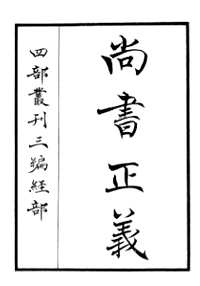 尚書正義
四部叢刊三編経部